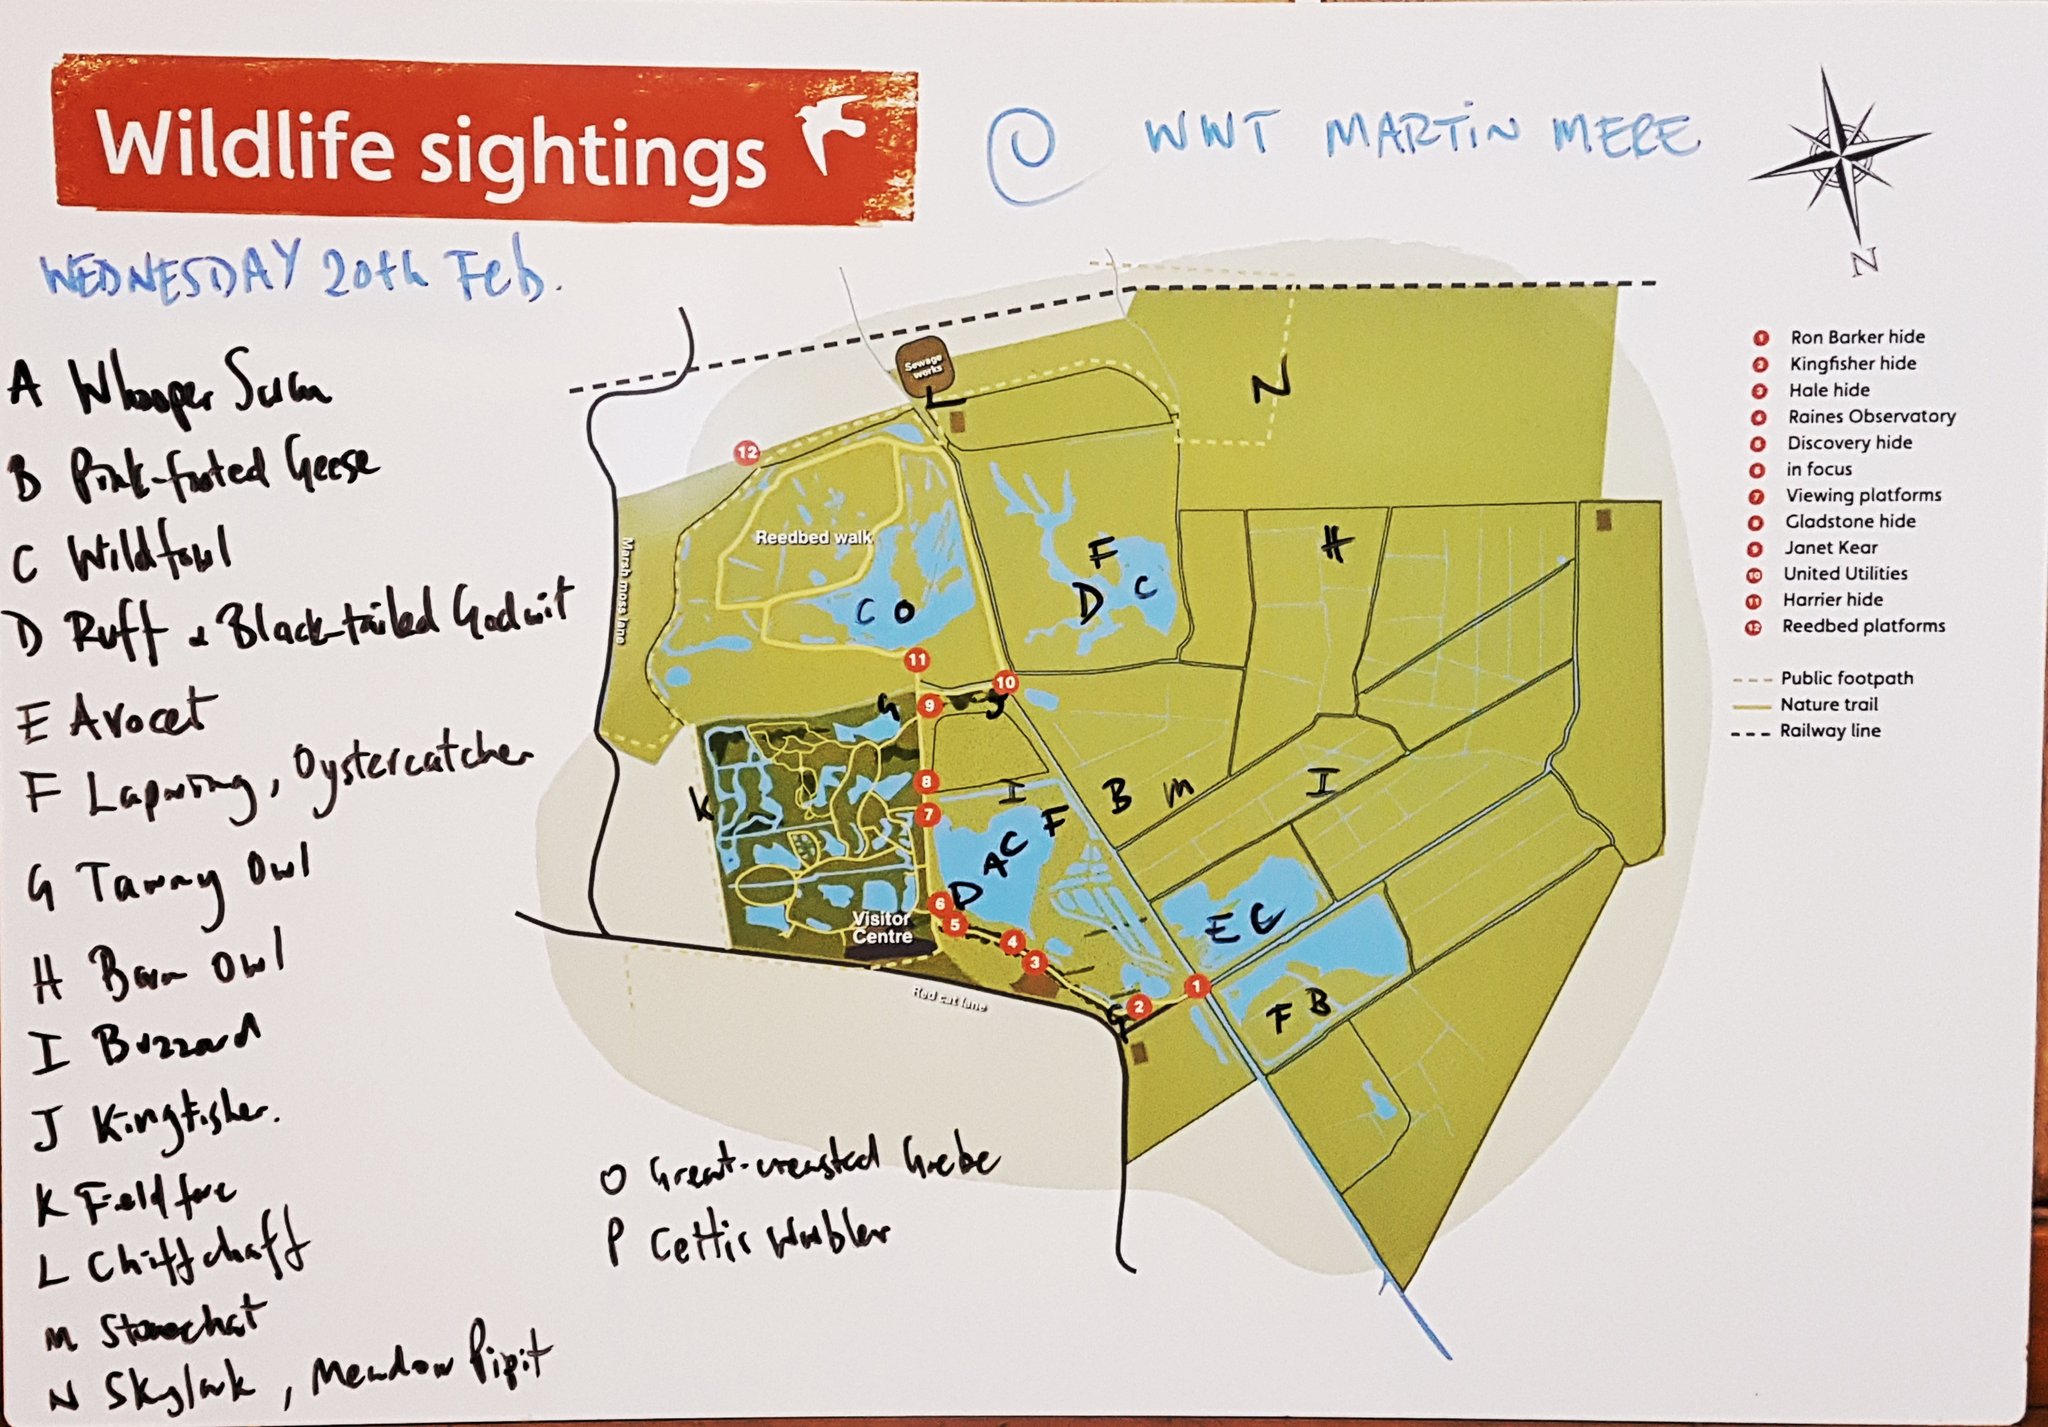 Wildlife sightings
@ WWT MARTIN MERE
WEDNESDAY 20th Feb.
N
A Whooper Swan
B Pink-footed Geese
C Wildfowl
D Ruff & Black-tailed Godwit
E Avocet
F Lapwing, Oystercatcher
G Tawny Owl
H Barn Owl
I Buzzard
J Kingfisher.
K Fieldfare
L Chiffchaff
M Stonechat
N Skylark, Meadow Pipit
O Great-crested Grebe
P Cettis Warbler
Sewage works
L
N
12
Reedbed walk
Marsh moss lane
F
H
D C
C O
11
10
G 9 J
8
I B M I
K
7
F
A C
D
6
5
Visitor Centre
4
3
E C
Red cat lane
2
1
G
F B
1 Ron Barker hide
2 Kingfisher hide
3 Hale hide
4 Raines Observatory
5 Discovery hide
6 in focus
7 Viewing platforms
8 Gladstone hide
9 Janet Kear
10 United Utilities
11 Harrier hide
12 Reedbed platforms
Public footpath
Nature trail
Railway line